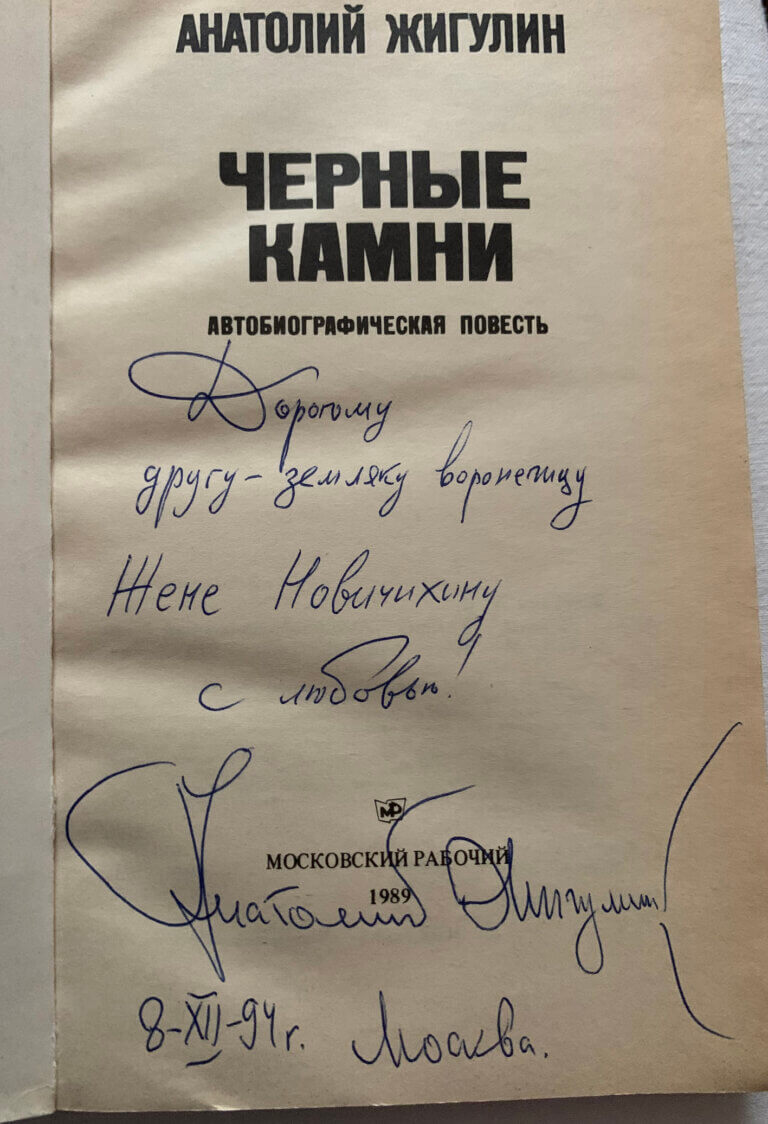 АНАТОЛИЙ ЖИГУЛИН
ЧЕРНЫЕ
КАМНИ
АВТОБИОГРАФИЧЕСКАЯ ПОВЕСТЬ
Дорогому
другу - земляку воронежцу
Жене Новичихину
с любовью!
МР
МОСКОВСКИЙ РАБОЧИЙ
1989
Анатолий Жигулин
8-XII-94 г. Москва.